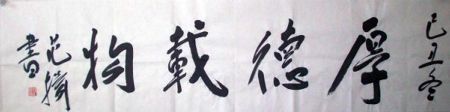 己丑冬
厚德載物
范擕
書